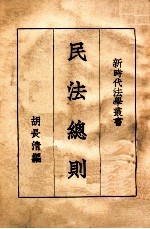 新時代法學叢書
民法總則
胡長清編